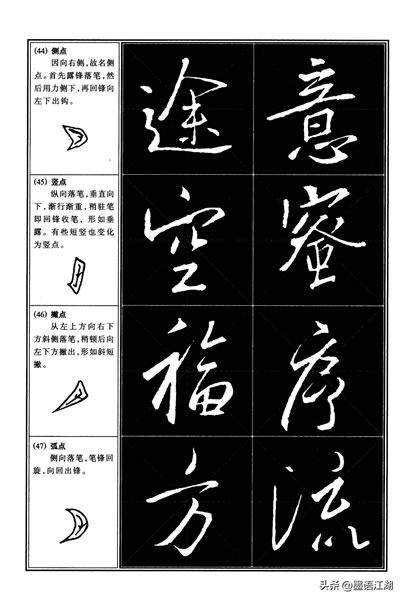 (44) 侧点
因向右侧,故名侧
点。首先露锋落笔,然
后用力侧下,再回锋向
左下出钩。
途 意
(45) 竖点
纵向落笔,垂直向
下,渐行渐重,稍驻笔
即回锋收笔,形如垂
露。有些短竖也变化
为竖点。
空 蜜
(46) 撇点
从左上方向右下
方斜侧落笔,稍顿后向
左下方撇出,形如斜短
撇。
福 序
(47) 弧点
侧向落笔,笔锋回
旋,向回出锋。
方 流
头条@墨语江湖